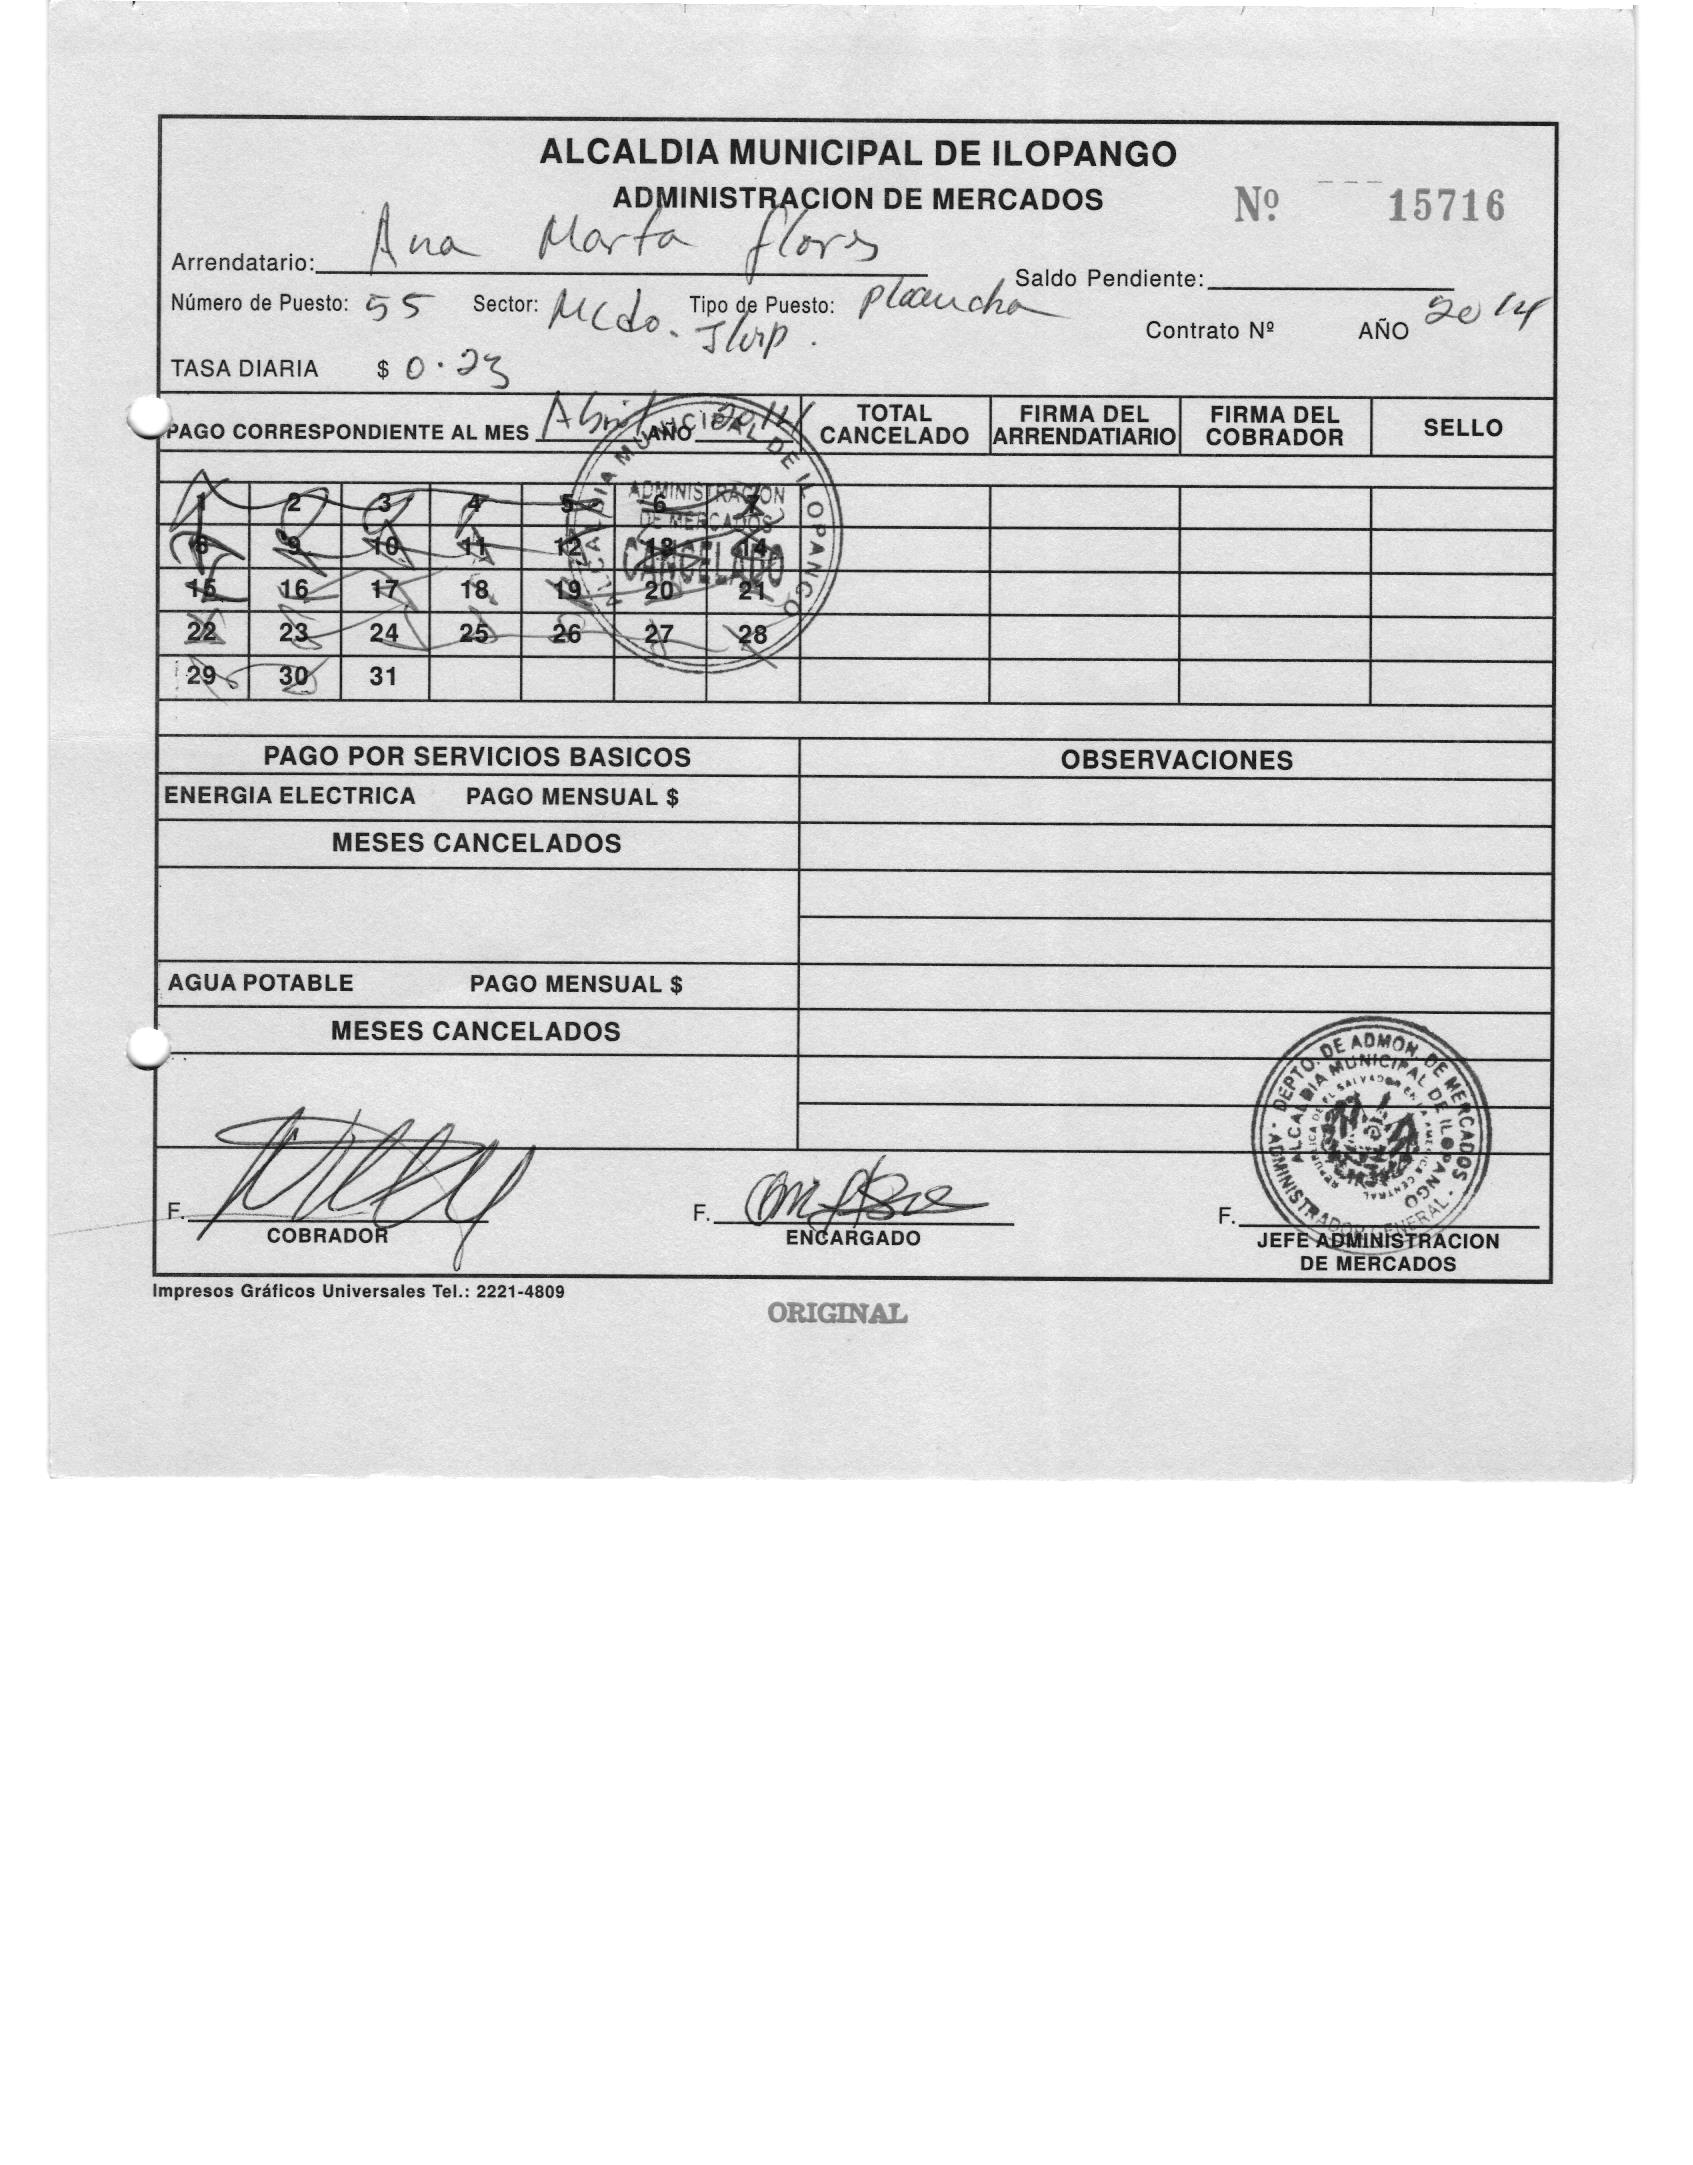 ALCALDIA MUNICIPAL DE ILOPANGO
ADMINISTRACION DE MERCADOS
Nº 15716
Arrendatario: Ana Marta flores
Saldo Pendiente:
Número de Puesto: 55 Sector: Mcdo. Ilop. Tipo de Puesto: plancha
Contrato Nº AÑO 2014
TASA DIARIA $ 0.23
PAGO CORRESPONDIENTE AL MES Abril AÑO 2014 TOTAL CANCELADO FIRMA DEL ARRENDATIARIO FIRMA DEL COBRADOR SELLO
ALCALDIA MUNICIPAL DE ILOPANGO
ADMINISTRACION
DE MERCADOS
CANCELADO
1 2 3 4 5 6 7
8 9 10 11 12 13 14
15 16 17 18 19 20 21
22 23 24 25 26 27 28
29 30 31
PAGO POR SERVICIOS BASICOS OBSERVACIONES
ENERGIA ELECTRICA PAGO MENSUAL $
MESES CANCELADOS
AGUA POTABLE PAGO MENSUAL $
MESES CANCELADOS
DEPTO. DE ADMON. DE MERCADOS
ALCALDIA MUNICIPAL DE ILOPANGO
REPUBLICA DE EL SALVADOR EN LA AMERICA CENTRAL
ADMINISTRADOR GENERAL
F. F. F.
COBRADOR ENCARGADO JEFE ADMINISTRACION
DE MERCADOS
Impresos Gráficos Universales Tel.: 2221-4809
ORIGINAL